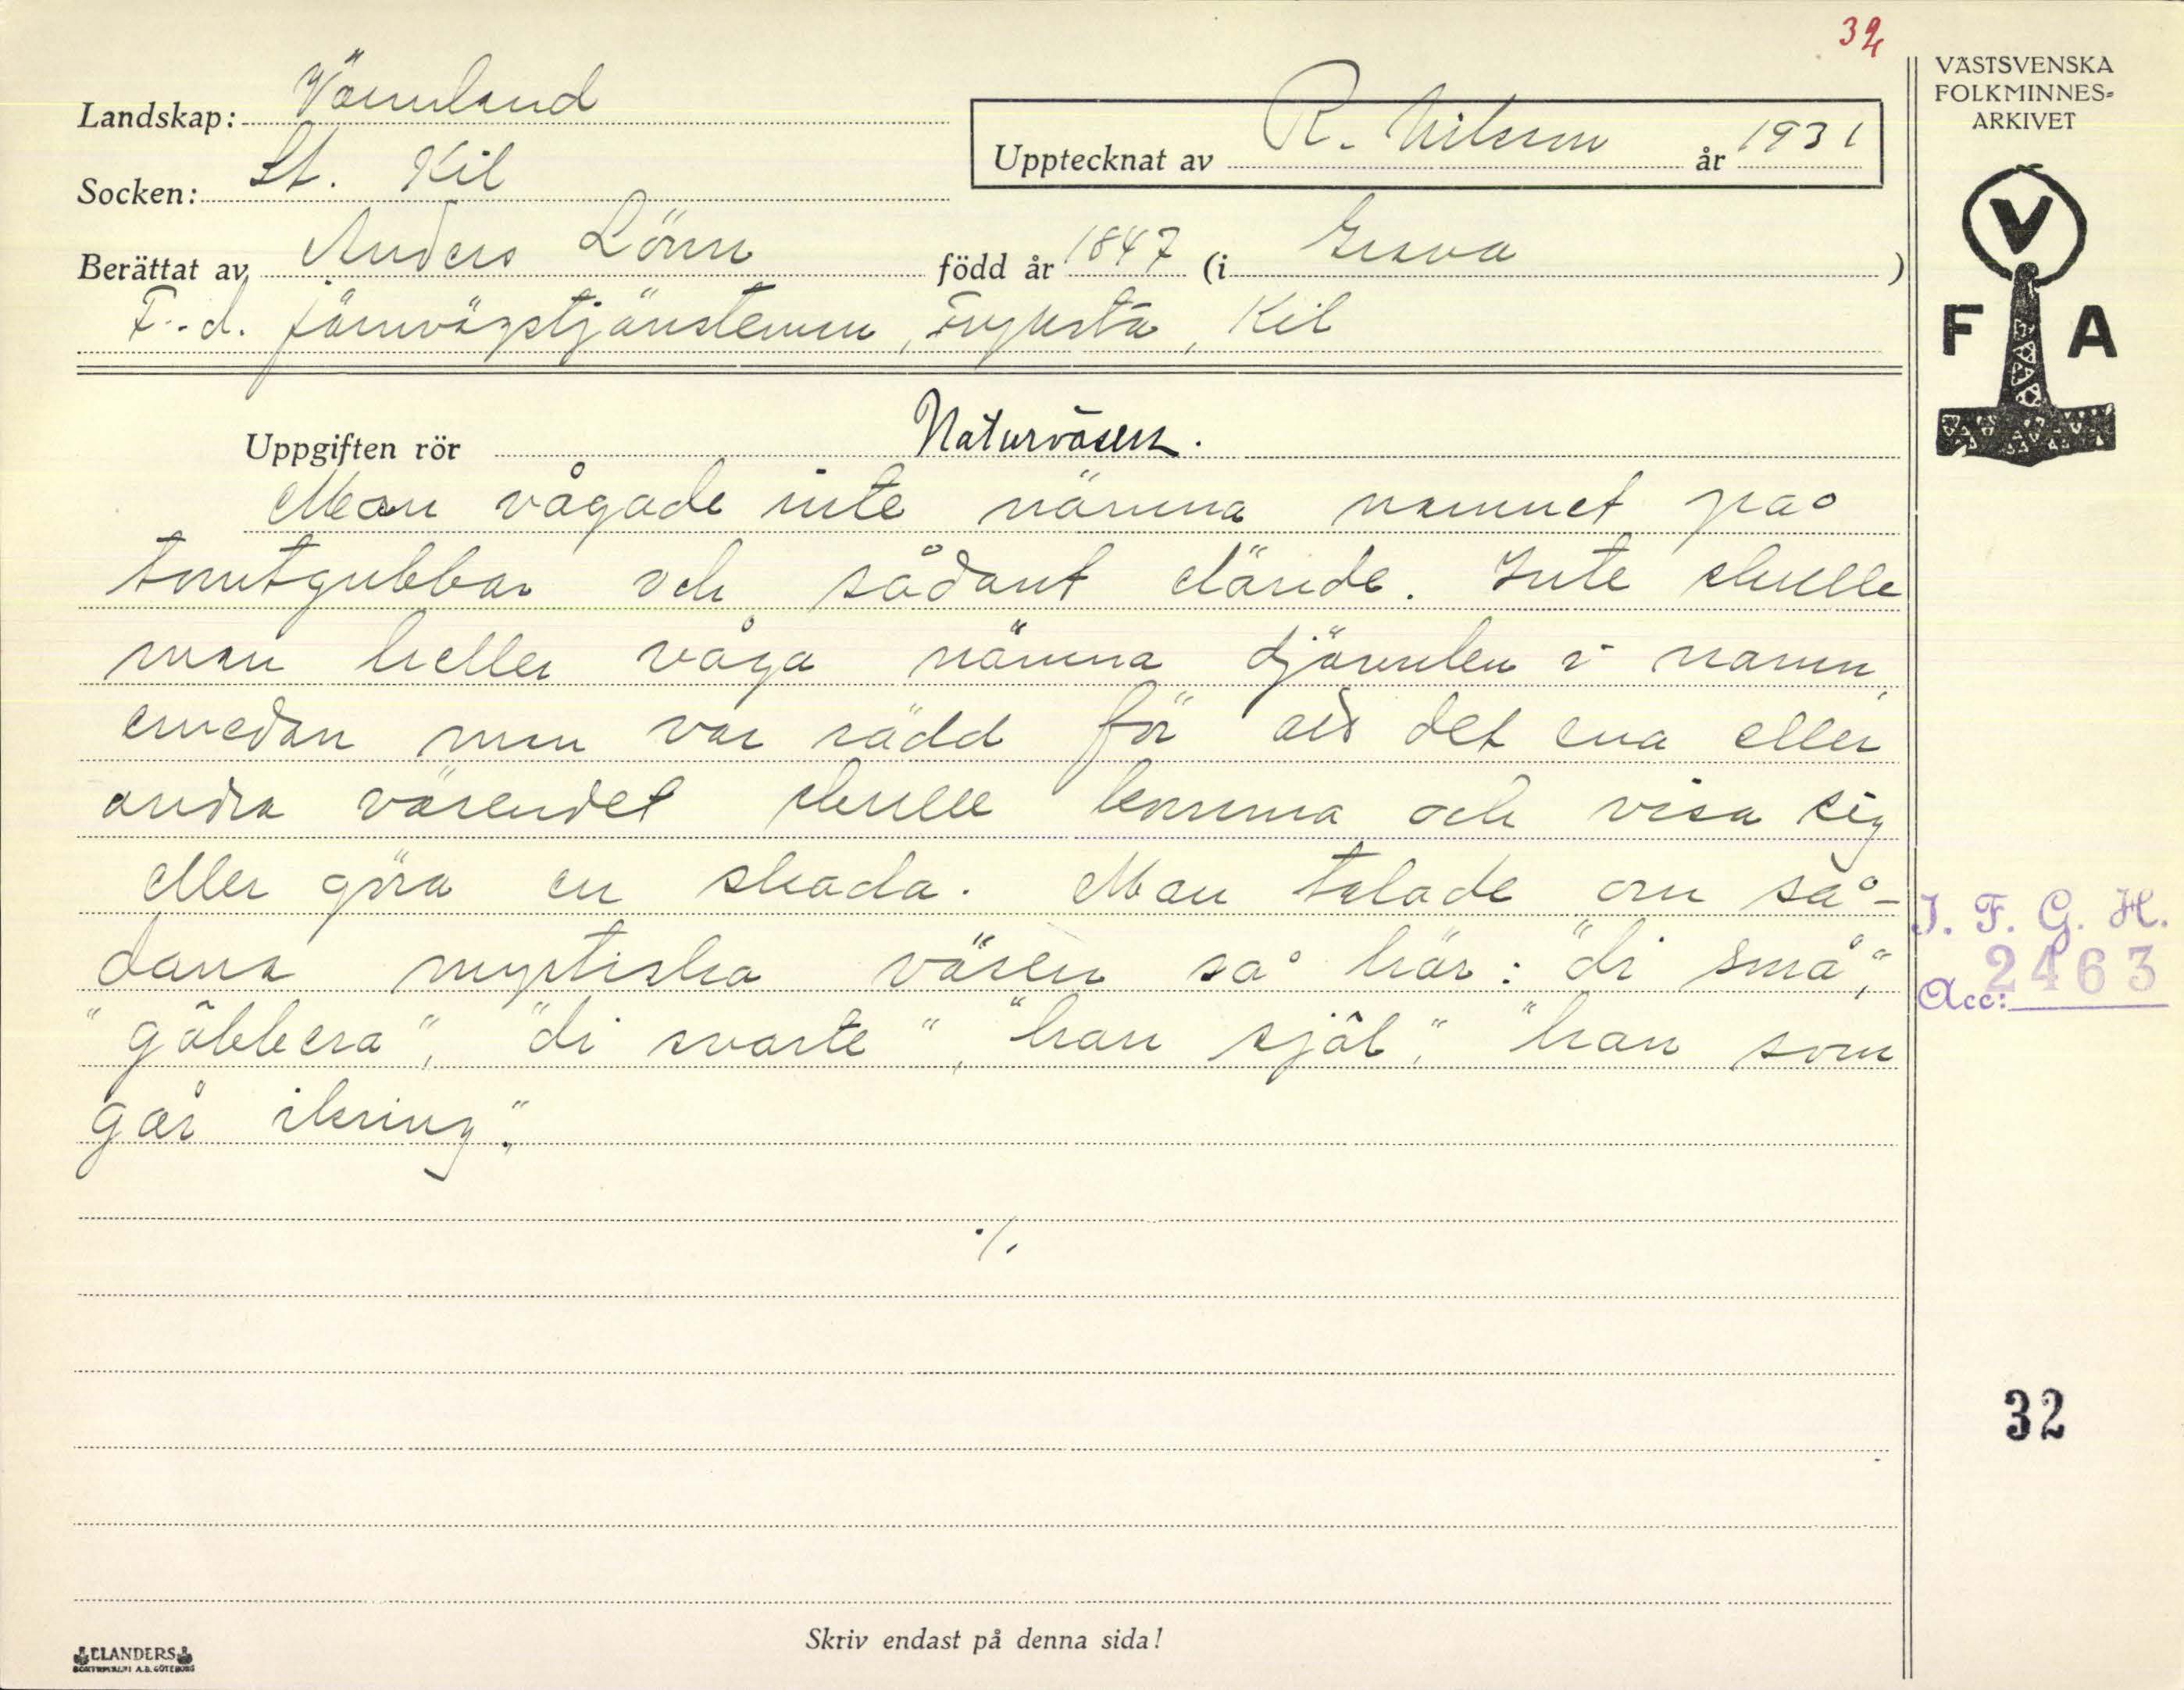 32
VÄSTSVENSKA
FOLKMINNES-
ARKIVET
V
F A
Landskap: Värmland
Upptecknat av R. Nilsson år 1931
Socken: St. Kil
Berättat av Anders Lönn född år 1847 (i Grava )
F. d. järnvägstjänsteman, Fryksta, Kil
Uppgiften rör Naturväsen.
Man vågade inte nämna namnet på
tomtgubbar och sådant elände. Inte skulle
man heller våga nämna djävulen i namn,
emedan man var rädd för att det ena eller
andra väsendet skulle komma och visa sig
eller göra en skada. Man talade om så-
dana mystiska väsen så här: "di små",
"gôbbera", "di svarte", "han sjôl", "han som
går ikring".
./.
I. F. G. H.
Acc: 2463
32
Skriv endast på denna sida!
ELANDERS
BOKTRYCKERI A.B. GÖTEBORG